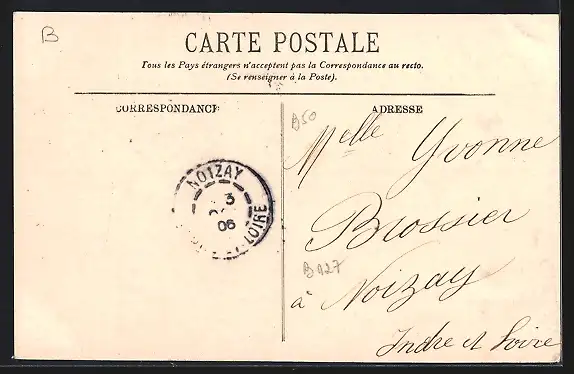 B
CARTE POSTALE
Tous les Pays étrangers n'acceptent pas la Correspondance au recto.
(Se renseigner à la Poste).
CORRESPONDANCE
ADRESSE
B50
Melle Yvonne
Brossier
B127
à Noizay
Indre et Loire
NOIZAY
3
06
LOIRE